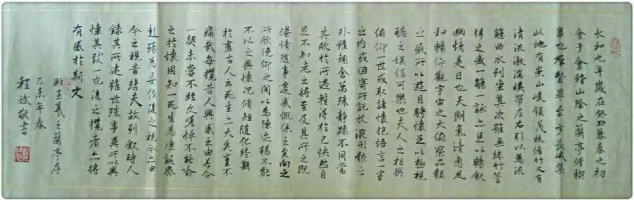 永和九年歲在癸丑暮春之初
會于會稽山陰之蘭亭脩稧
事也群賢畢至少長咸集
此地有崇山峻領茂林脩竹又有
清流激湍暎帶左右引以為流
觴曲水列坐其次雖無絲竹管
弦之盛一觴一詠亦足以暢敘
幽情是日也天朗氣清惠風
和暢仰觀宇宙之大俯察品類
之盛所以遊目騁懷足以極視
聽之娛信可樂也夫人之相與
俯仰一世或取諸懷抱悟言一室
之內或因寄所託放浪形骸之
外雖趣舍萬殊靜躁不同當
其欣於所遇暫得於己快然自
足不知老之將至及其所之既
惓情隨事遷感慨係之矣向之
所欣俛仰之間以為陳迹猶不能
不以之興懷況脩短隨化終期
於盡古人云死生亦大矣豈不
痛哉每攬昔人興感之由若合
一契未嘗不臨文嗟悼不能喻
之於懷固知一死生為虛誕齊
彭殤為妄作後之視今亦由
今之視昔悲夫故列敘時人
錄其所述雖世殊事異所以興
懷其致一也後之攬者亦將
有感於斯文
臨王羲之蘭亭序
乙未年春
程敬書